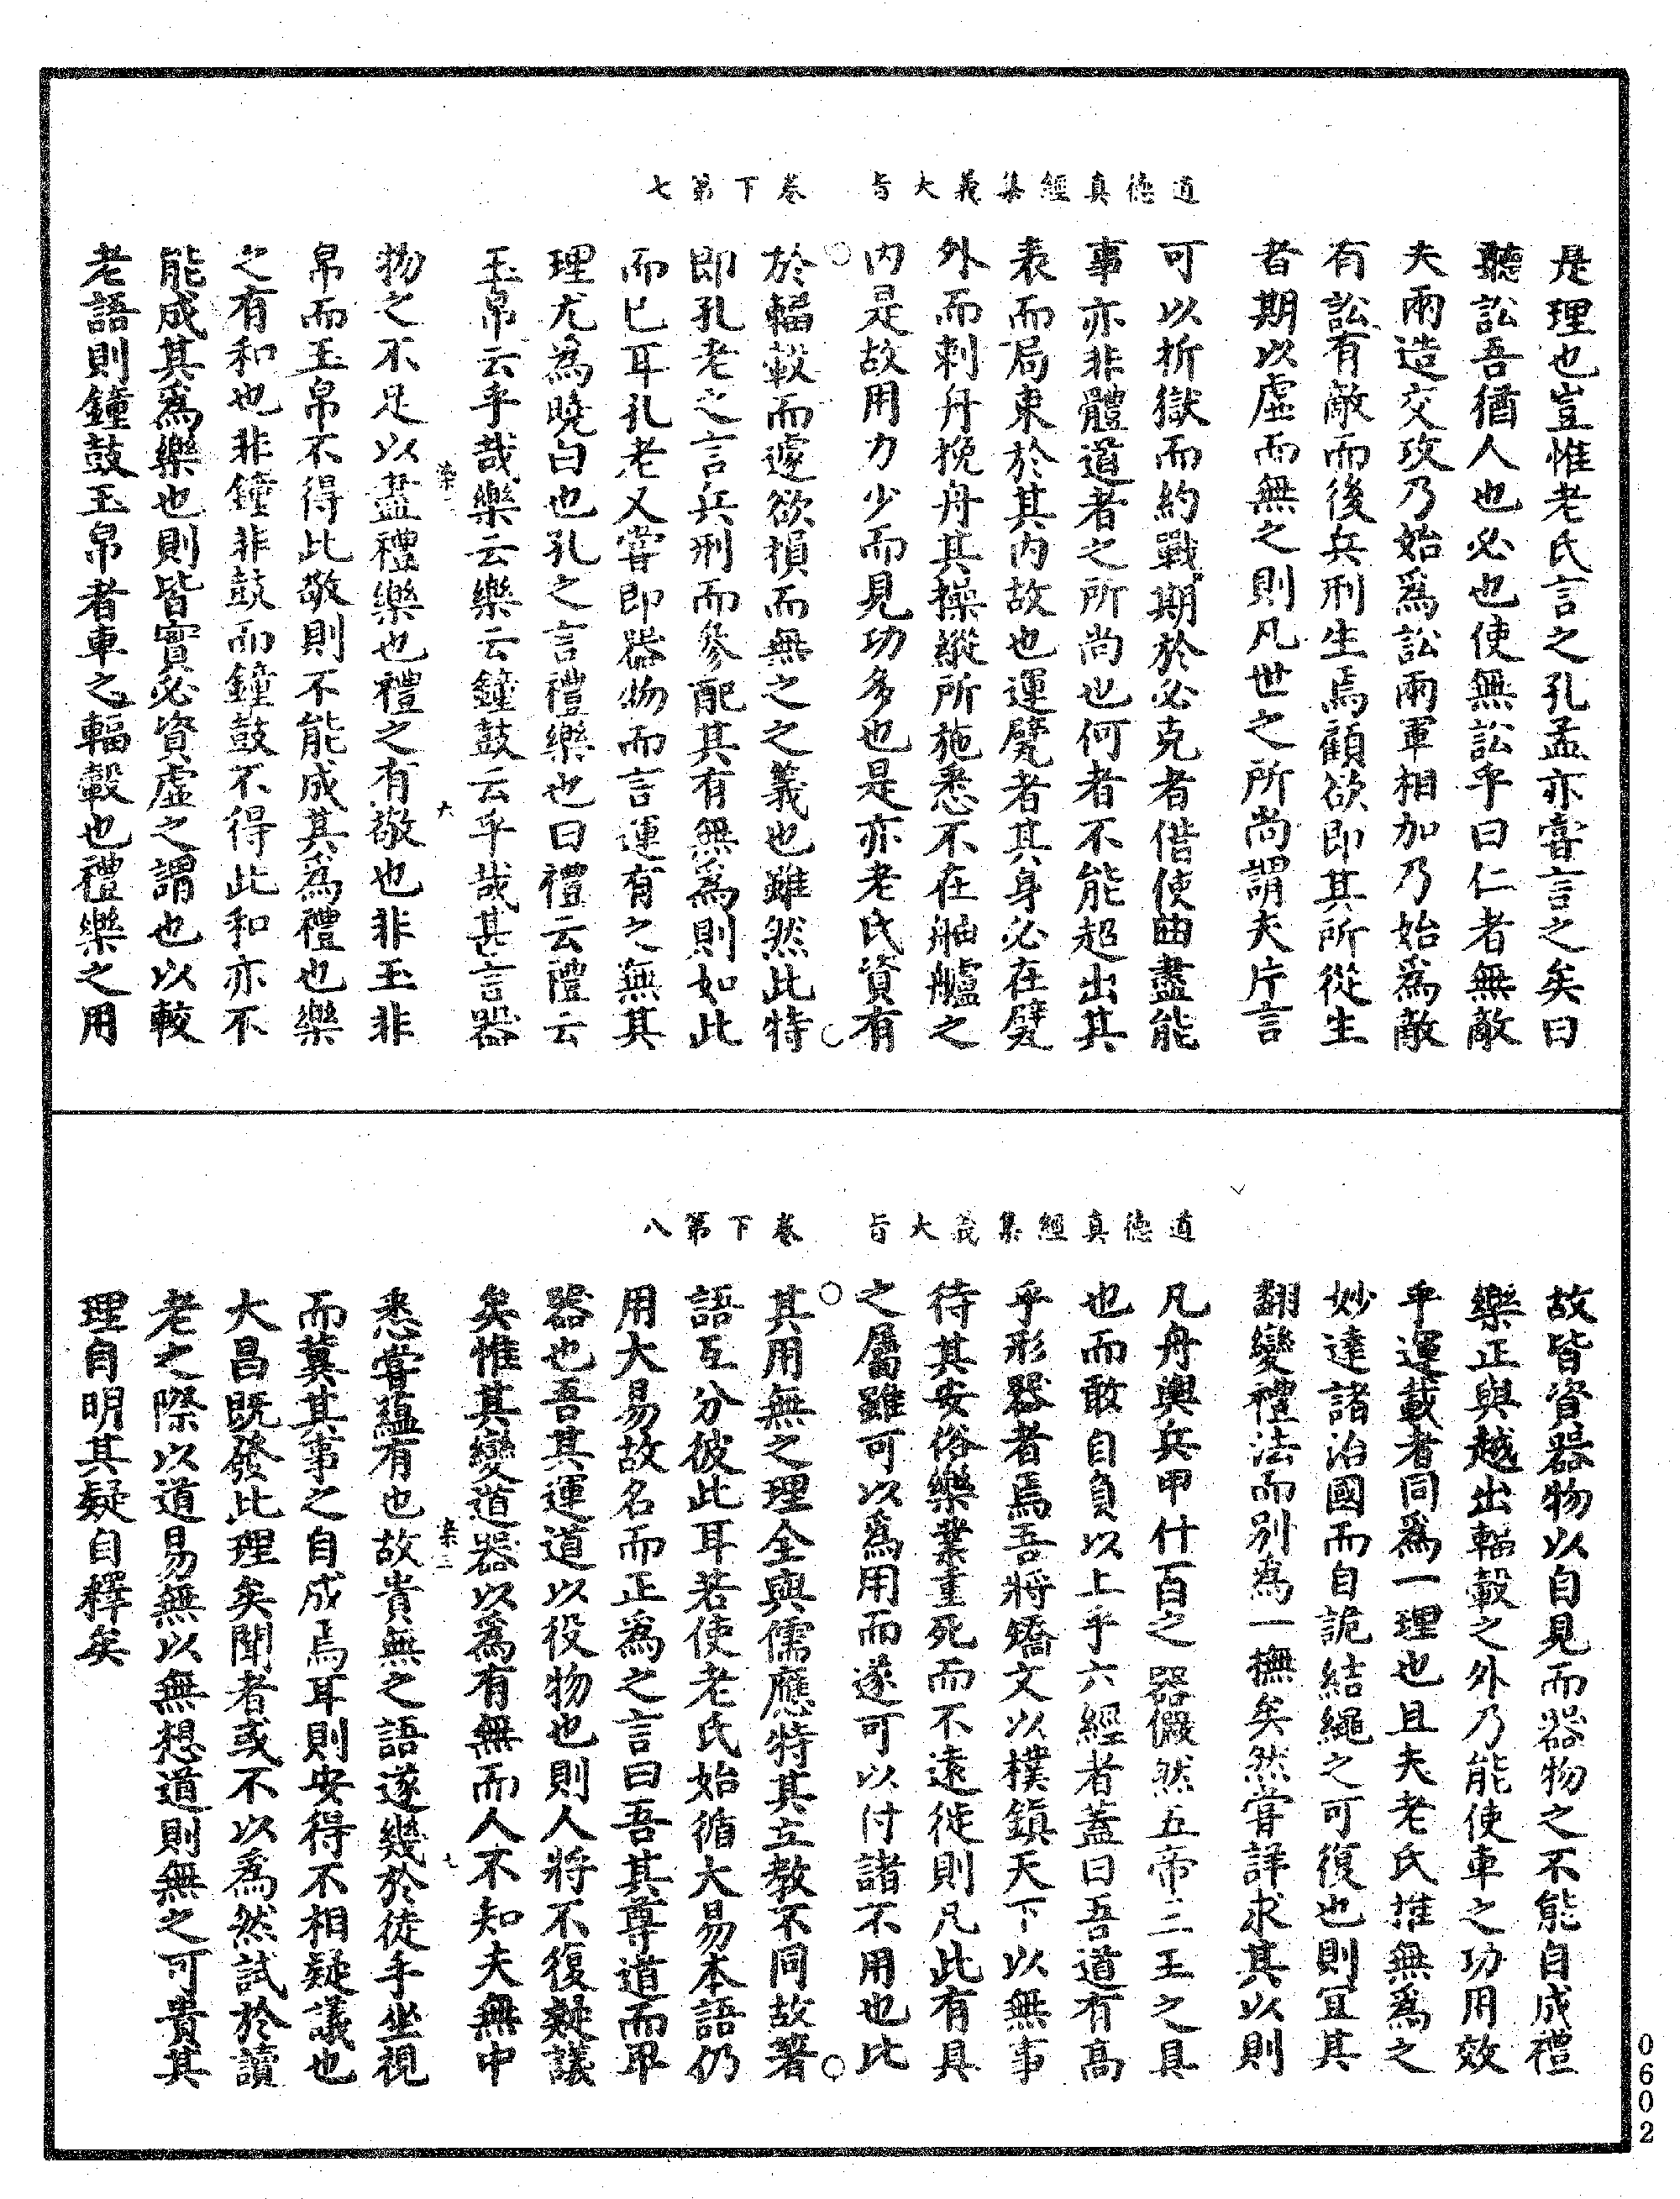 道德真經集義大旨　卷下第七
是理也豈惟老氏言之孔孟亦嘗言之矣曰
聽訟吾猶人也必也使無訟乎曰仁者無敵
夫兩造交攻乃始爲訟兩軍相加乃始爲敵
有訟有敵而後兵刑生焉顧欲即其所從生
者期以虛而無之則凡世之所尚謂夫片言
可以折獄而約戰期於必克者偕使曲盡能
事亦非體道者之所尚也何者不能超出其
表而局束於其內故也運甓者其身必在甓
外而刺舟挽舟其操縱所施悉不在舳艫之
內是故用力少而見功多也是亦老氏資有
於輻轂而遽欲損而無之之義也雖然此特
即孔老之言兵刑而參配其有無爲則如此
而已耳孔老又嘗即器物而言運有之無其
理尤為曉白也孔之言禮樂也曰禮云禮云
玉帛云乎哉樂云樂云鐘鼓云乎哉甚言器
物之不足以盡禮樂也禮之有敬也非玉非
帛而玉帛不得此敬則不能成其為禮也樂
之有和也非鐘非鼓而鐘鼓不得此和亦不
能成其爲樂也則皆實必資虛之謂也以較
老語則鐘鼓玉帛者車之輻轂也禮樂之用
道德真經集義大旨　卷下第八
故皆資器物以自見而器物之不能自成禮
樂正與越出輻轂之外乃能使車之功用效
乎運載者同爲一理也且夫老氏推無爲之
妙達諸治國而自詭結繩之可復也則宜其
翻變禮法而別為一撫矣然嘗詳求其以則
凡舟輿兵甲什百之器儼然五帝三王之具
也而敢自負以上乎六經者蓋曰吾道有高
乎形器者焉吾將矯文以樸鎮天下以無事
待其安俗樂業重死而不遠徙則凡此有具
之屬雖可以爲用而遂可以付諸不用也比
其用無之理全與儒應特其立教不同故著
語互分彼此耳若使老氏始循大易本語仍
用大易故名而正為之言曰吾其尊道而卑
器也吾其運道以役物也則人將不復疑議
矣惟其變道器以爲有無而人不知夫無中
悉嘗蘊有也故貴無之語遂幾於徒手坐視
而冀其事之自成焉耳則安得不相疑議也
大昌既發此理矣聞者或不以爲然試於讀
老之際以道易無以無想道則無之可貴其
理自明其疑自釋矣
0602